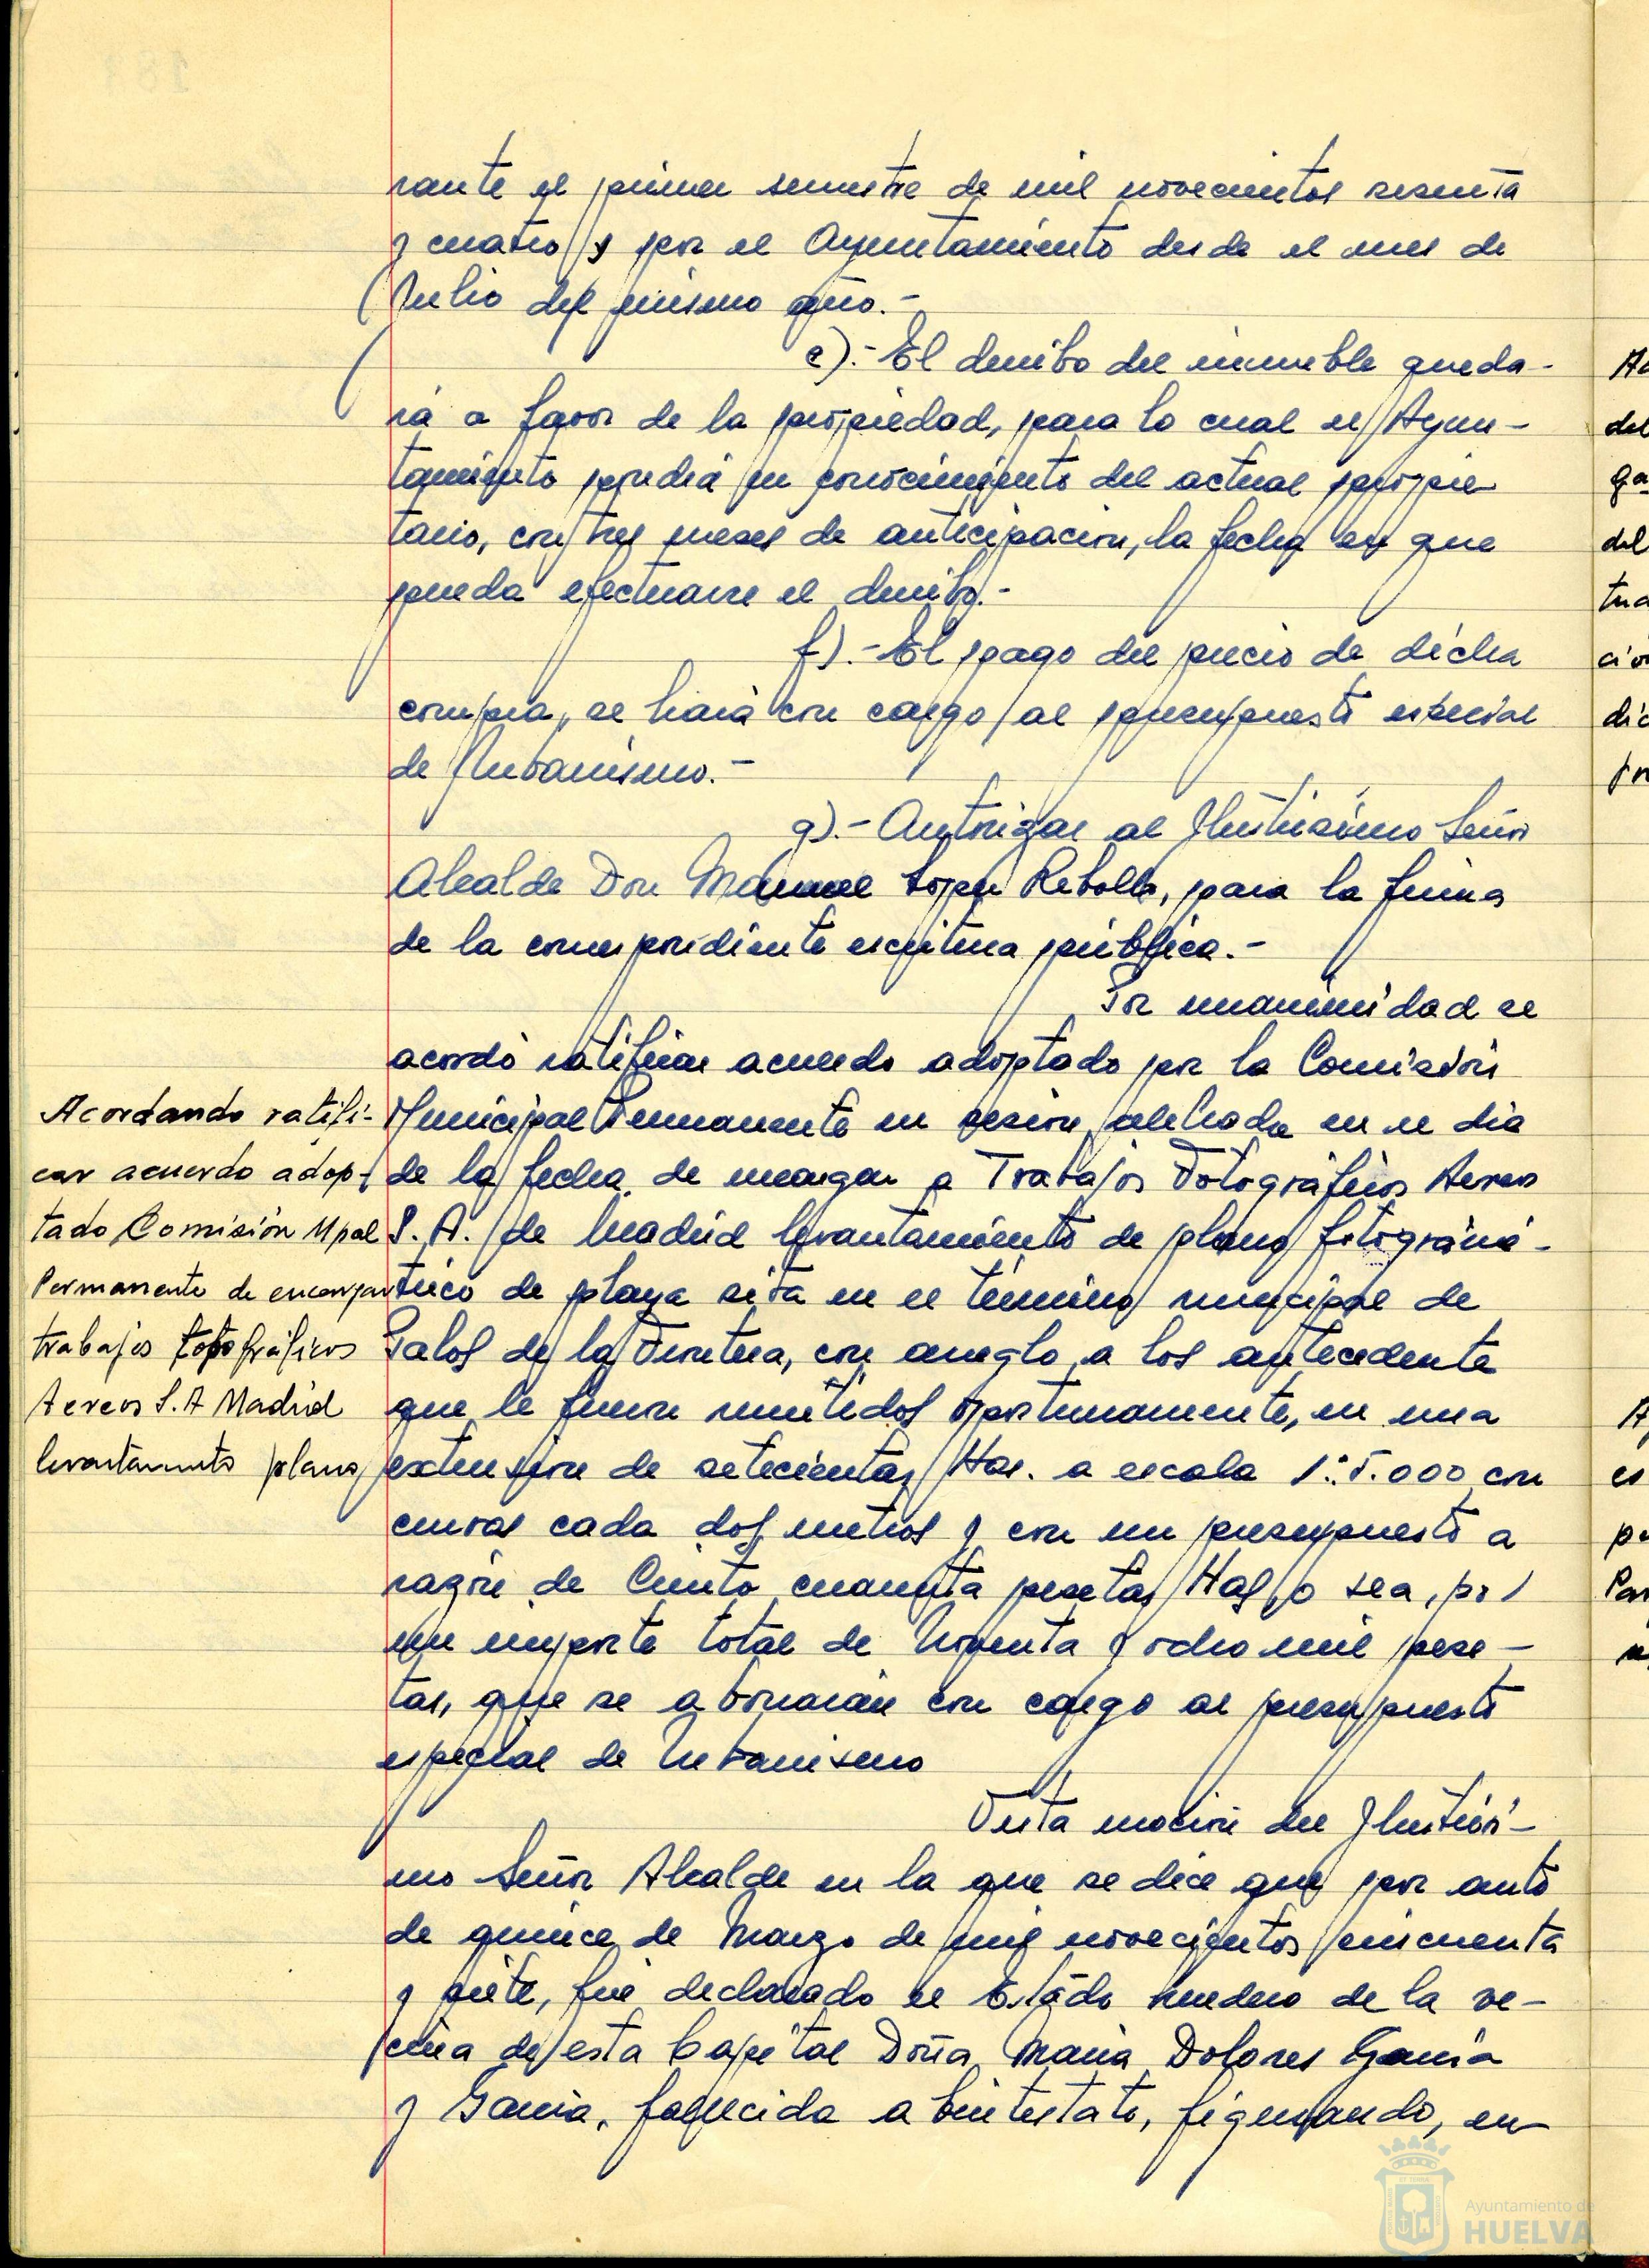 rante el primer semestre de mil novecientos sesenta
y cuatro y por el Ayuntamiento desde el mes de
Julio del mismo año.-
e).- El derribo del inmueble queda-
rá a favor de la propiedad, para lo cual el Ayun-
tamiento pondrá en conocimiento del actual propie-
tario, con tres meses de anticipación, la fecha en que
pueda efectuarse el derribo.-
f).- El pago del precio de dicha
compra, se hará con cargo al presupuesto especial
de Urbanismo.-
g).- Autorizar al Ilustrísimo Señor
Alcalde Don Manuel López Rebollo, para la firma
de la correspondiente escritura pública.-
Por unanimidad se
acordó ratificar acuerdo adoptado por la Comisión
Municipal Permanente en sesión celebrada en el dia
de la fecha, de encargar a Trabajos Fotográficos Aereos
S. A. de Madrid levantamiento de plano fotogramé-
trico de playa sita en el término municipal de
Palos de la Frontera, con arreglo a los antecedente
que le fueron remitidos oportunamente, en una
extensión de setecientas Has. a escala 1:5.000 con
curvas cada dos metros y con un presupuesto a
razón de Ciento cuarenta pesetas Has, o sea, por
un importe total de Noventa y ocho mil pese-
tas, que se abonarán con cargo al presupuesto
especial de Urbanismo
Vista moción del Ilustrísi-
mo Señor Alcalde en la que se dice que por auto
de quince de Marzo de mil novecientos cincuenta
y siete, fué declarado el Estado heredero de la ve-
cina de esta Capital Doña María Dolores García
y García, fallecida abintestato, figurando, en-
Acordando ratifi-
car acuerdo adop-
tado Comisión Mpal
Permanente de encargar
trabajos fotográficos
Aereos S.A Madrid
levantamiento plano
del
del
Ayuntamiento de
HUELVA